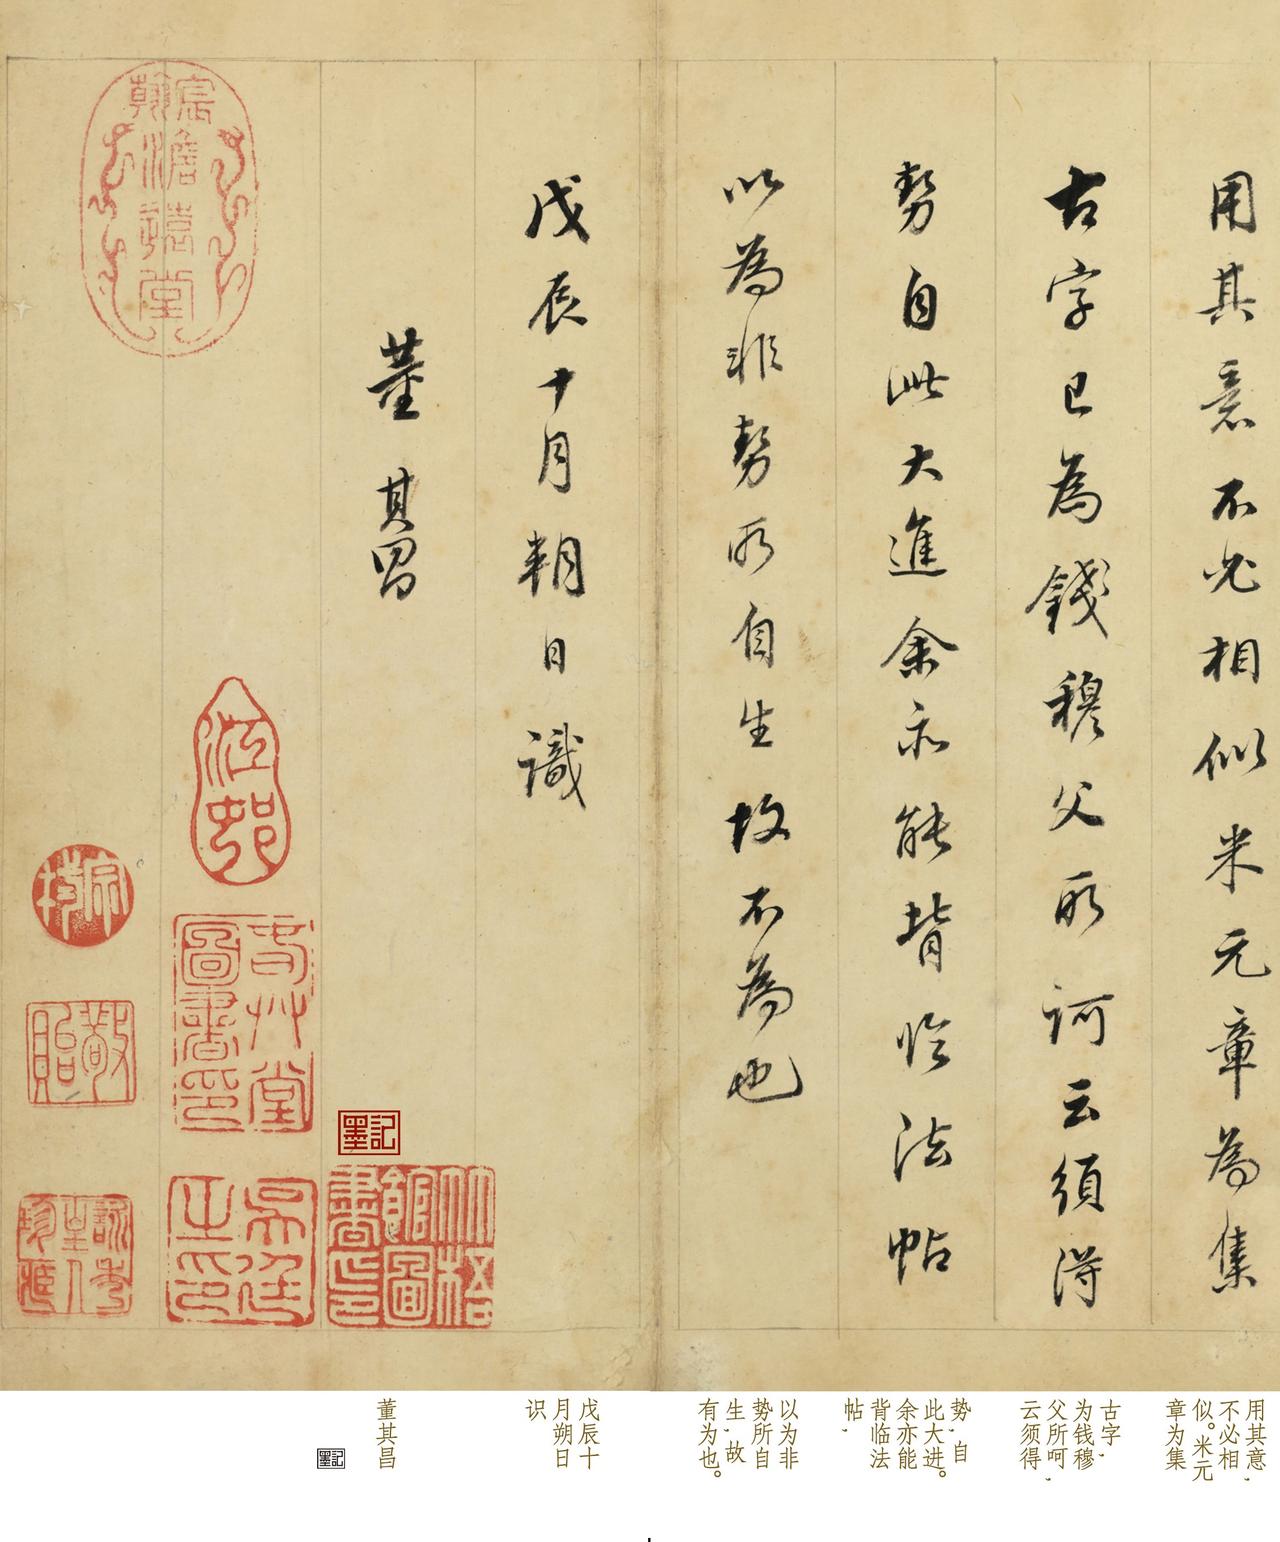 用其意不必相似米元章為集
古字已為錢穆父所訶云須得
勢自此大進余亦能背臨法帖
以為非勢所自生故不為也
戊辰十月朔日識
董其昌
宸翰
江邨
墨記
用其意,
不必相
似。米元
章为集
古字,
为钱穆
父所呵,
云须得
势,自
此大进。
余亦能
背临法
帖,
以为非
势所自
生,故
有为也。
戊辰十
月朔日
识
董其昌
墨記